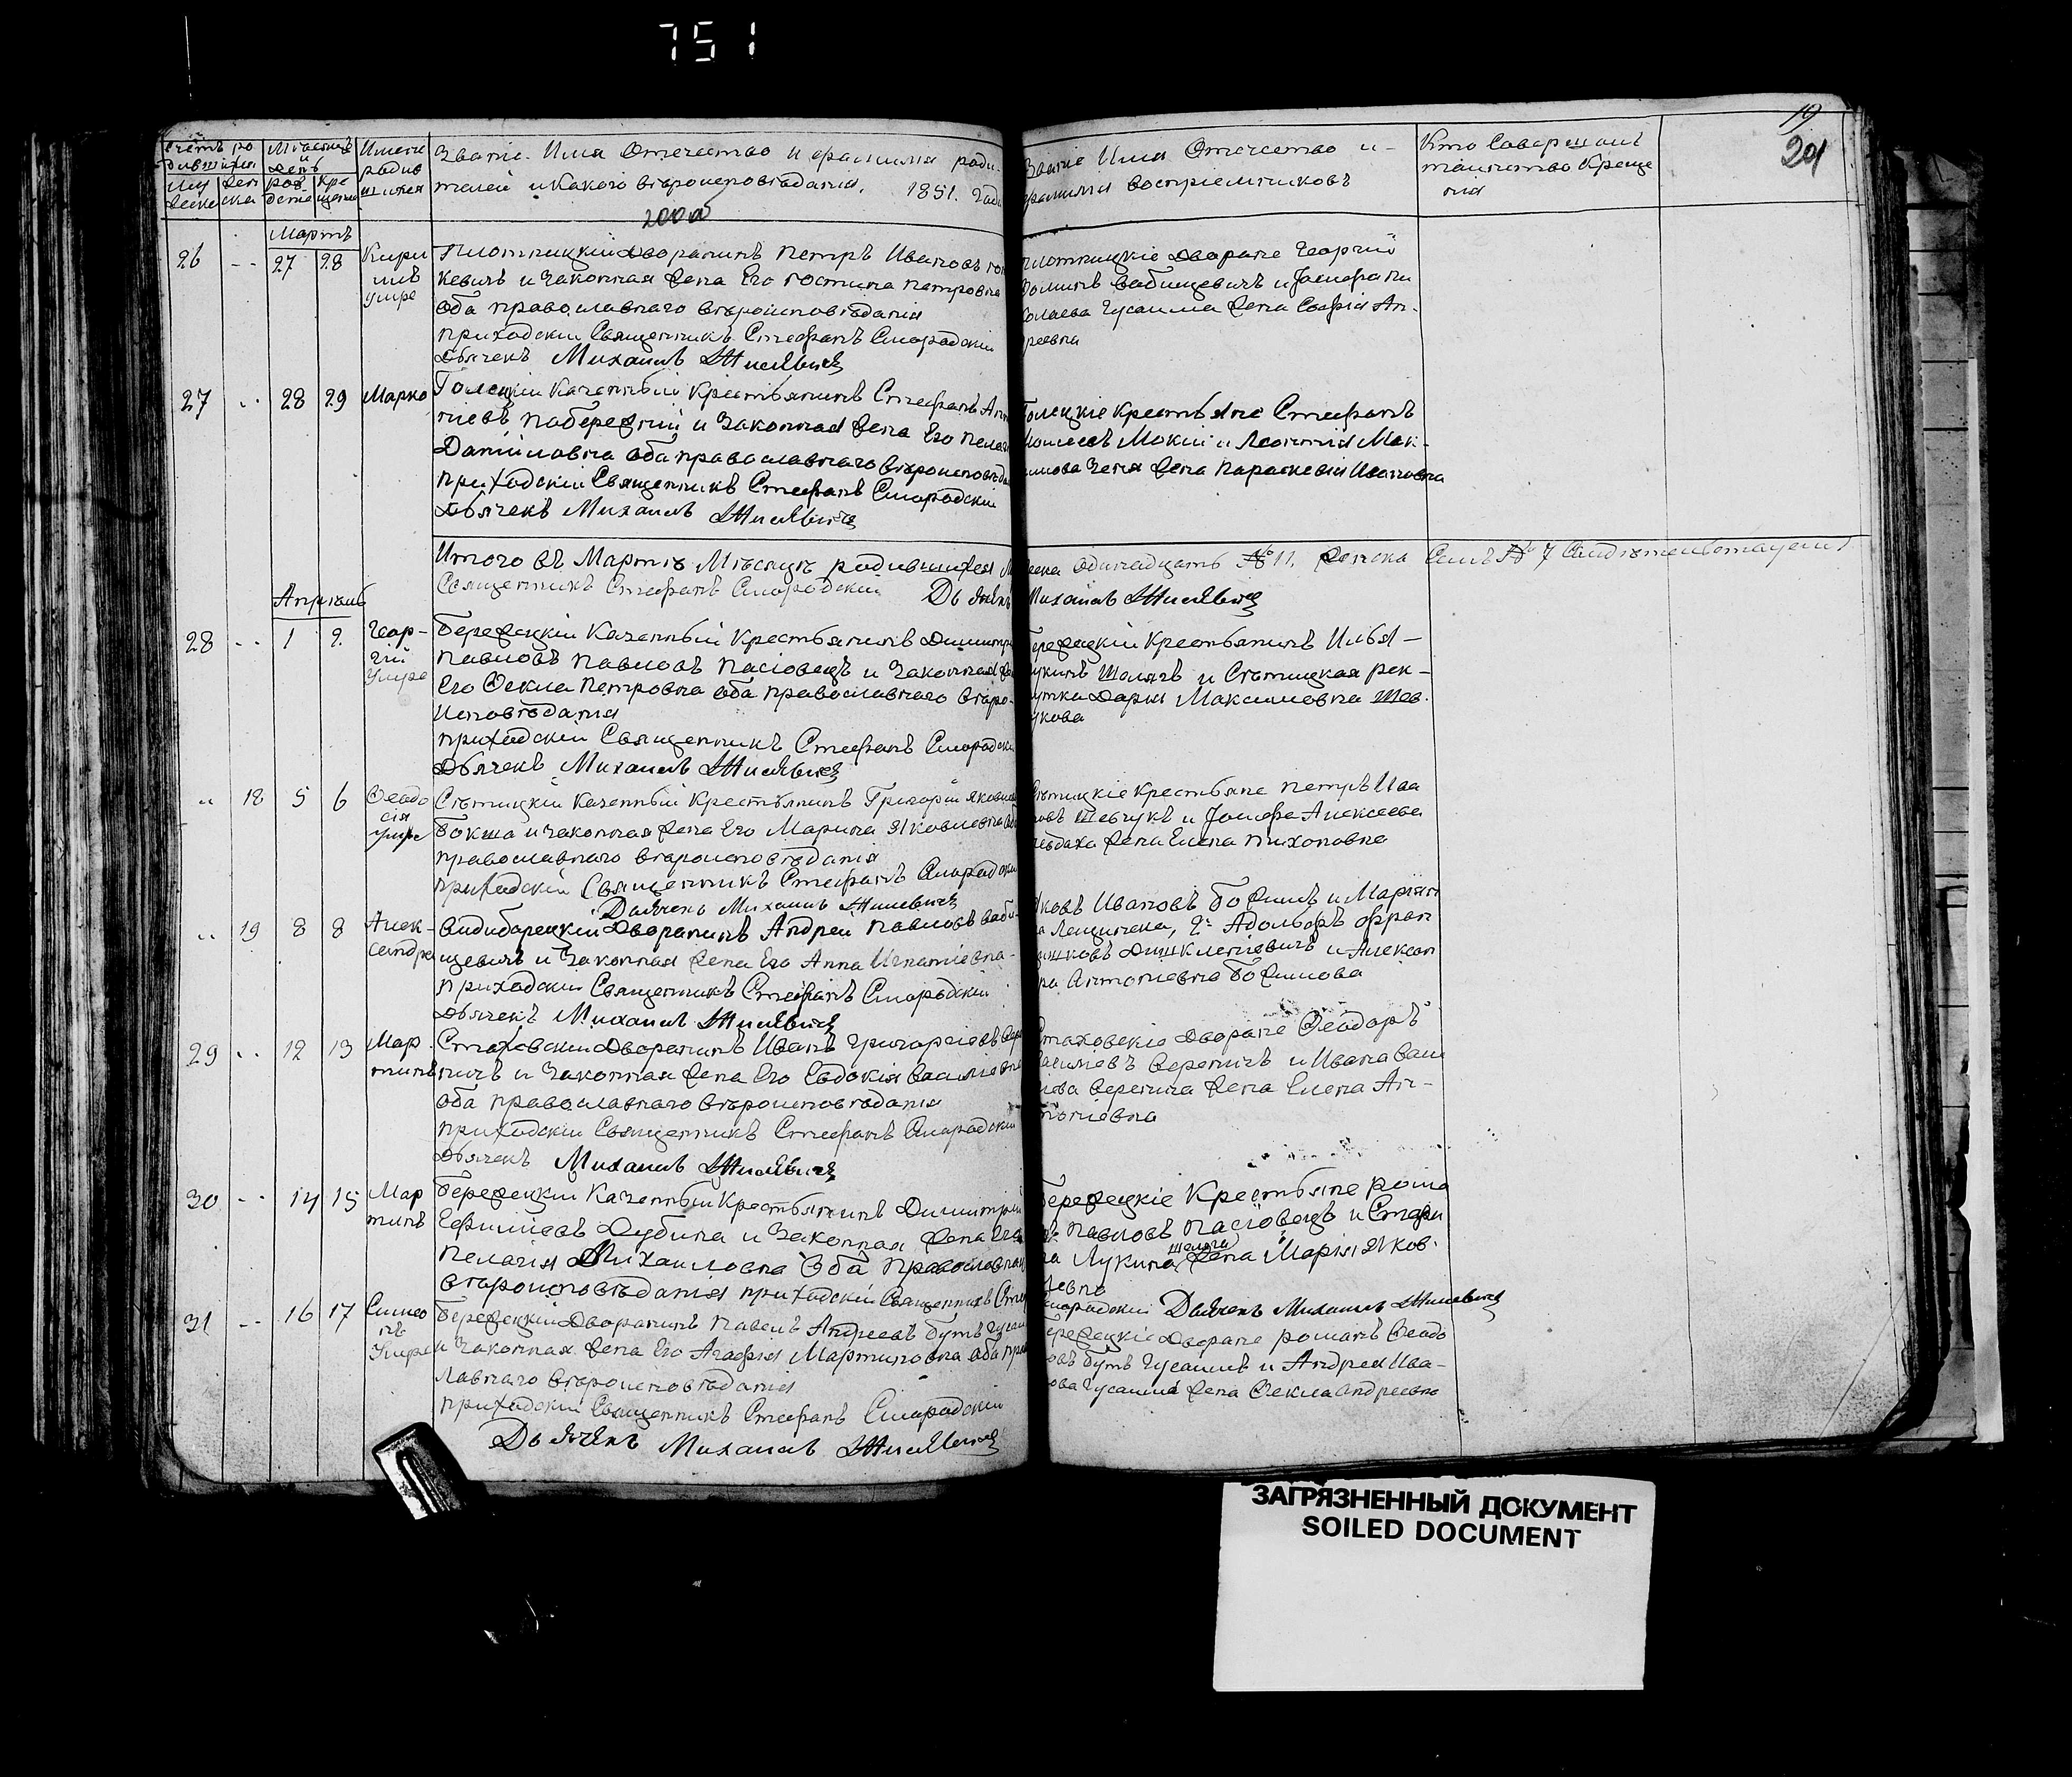 751
19
201
Счетъ ро
дившихся
Мѣсяцъ
и
день
Имена
родив
шихся
Званіе. Имя Отечество и фамилія роди-
телей и Какого вѣроисповѣданія. 1851. года
Званіе Имя Отечество и
фамилія воспріемниковъ
Кто Совершалъ
таинство Креще
нія
Мартъ
26 27 28 Кири
лъ
умре
Плотницкій Дворянинъ Петръ Ивановъ
кевичъ и Законная жена Его Гостина Петровна
оба православнаго вѣроисповѣданія
приходскій Священникъ Стефанъ Смородскій
Дьячекъ Михаилъ Жилевичъ
Плотницкіе Дворяне Георгій
Фоминъ Бабицевичъ и
Гусаима жена Софія Ан-
дреевна
27 28 29 Марко
Голецкій Казенный Крестьянинъ Стефанъ
піевъ Набережній и Законная жена Его Пелаг
Даніиловна оба православнаго вѣроисповѣда
приходскій Священникъ Стефанъ Смородскій
Дьячекъ Михаилъ Жилевичъ
Голецкіе Крестьяне Стефанъ
Моисеевъ Мокій и Леонтія Мак-
симова жена Параскевія Ивановна
Итого въ Мартѣ Мѣсяцѣ родившихся
Священникъ Стефанъ Смородскій Дьячекъ
одинадцать № 11. женска № 7
Михаилъ Жилевичъ
Апрѣль
28 1 2 Геор-
гій
умре
Бережецкій Казенный Крестьянинъ Димитрі
Павловъ Павловъ Пасіовецъ и Законная
Его Фекла Петровна оба православнаго вѣро-
исповѣданія
приходскій Священникъ Стефанъ Смородскі
Дьячекъ Михаилъ Жилевичъ
Бережецкій Крестьянинъ Илья
Лукинъ Шолягъ и Сѣтицкая рек-
рутка Дарья Максимовна Шев-
чукова
18 5 6 Феодо
сія
умре
Сѣтицкій Казенный Крестьянинъ Григорій Яковл
Бокша и законная жена Его Марина Яковлевна
православнаго вѣроисповѣданія
приходскій Священникъ Стефанъ Смородскі
Дьячекъ Михаилъ Жилевичъ
Сѣтицкіе Крестьяне Петръ Ива
новъ Шевчукъ и Іосифа Алексеева
жена Елена Тихоновна
19 8 8 Алек-
сандра
Видиборецкій Дворянинъ Андрей Павловъ Баби-
щевичъ и Законная жена Его Анна Игнатіевна
приходскій Священникъ Стефанъ Смородскій
Дьячекъ Михаилъ Жилевичъ
Яковъ Ивановъ Божимъ и Маріян
на Лещинска, 2: Адольфъ Фран
цишковъ и Алексан
дра Антоніевна Божимова
29 12 13 Мар
тинъ
Стаховскій Дворянинъ Иванъ Григоріевъ Вере
ничъ и Законная жена Его Евдокія Василіевна
оба православнаго вѣроисповѣданія
приходскій Священникъ Стефанъ Смородскій
Дьячекъ Михаилъ Жилевичъ
Стаховскіе Дворяне Феодоръ
Василіевъ Вереничъ и Ивана Васи
ліева Веренича жена Елена Ан-
тоніевна
30 14 15 Мар
тинъ
Бережецкій Казенный Крестьянинъ Димитрій
Ефиміевъ Дубина и Законная жена Его
Пелагія Михаиловна Оба Православна
вѣроисповѣданія приходскій Священникъ Стеф
Бережецкіе Крестьяне Рома
нъ Павловъ Пасіовецъ и Стефа
на Лукина Шоляга жена Марія Яков-
левна
Смородскій Дьячекъ Михаилъ Жилевичъ
31 16 17 Симео
нъ
умре
Бережецкій Дворянинъ Павелъ Андреевъ Бутъ Гусаи
и Законная жена Его Агафія Мартиновна оба пра
лавнаго вѣроисповѣданія
приходскій Священникъ Стефанъ Смородскій
Дьячекъ Михаилъ Жилевичъ
Бережецкіе Дворяне Романъ Феодо
ровъ Бутъ Гусаимъ и Андрея Ива-
нова Гусаима жена Фекла Андреевна
ЗАГРЯЗНЕННЫЙ ДОКУМЕНТ
SOILED DOCUMENT